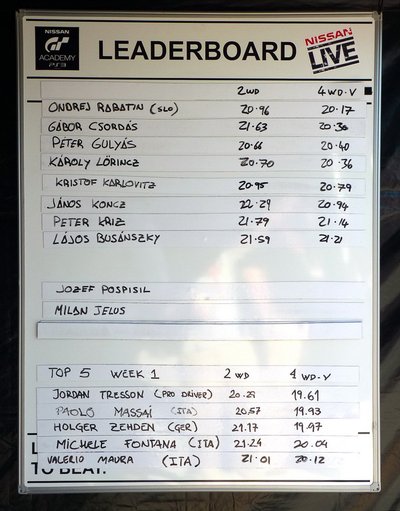 NISSAN
GT
ACADEMY
PS3
LEADERBOARD
NISSAN
LIVE
2WD 4WD-V
ONDREJ RABATIN (SLO) 20.96 20.17
GÁBOR CSORDÁS 21.63 20.30
PÉTER GULYÁS 20.66 20.40
KÁROLY LŐRINCZ 20.70 20.36
KRISTOF KARLOVITZ 20.95 20.79
JÁNOS KONCZ 22.29 20.94
PETER KRIZ 21.79 21.14
LÁJOS BUSÁNSZKY 21.59 21.21
JOZEF POSPISIL
MILAN JELUS
TOP 5 WEEK 1 2 WD 4 WD-V
JORDAN TRESSON (PRO DRIVER) 20.29 19.61
PAOLO MASSAÍ (ITA) 20.57 19.93
HOLGER ZEHDEN (GER) 21.17 19.97
MICHELE FONTANA (ITA) 21.24 20.04
VALERIO MAURA (ITA) 21.01 20.12
TO BEAT.